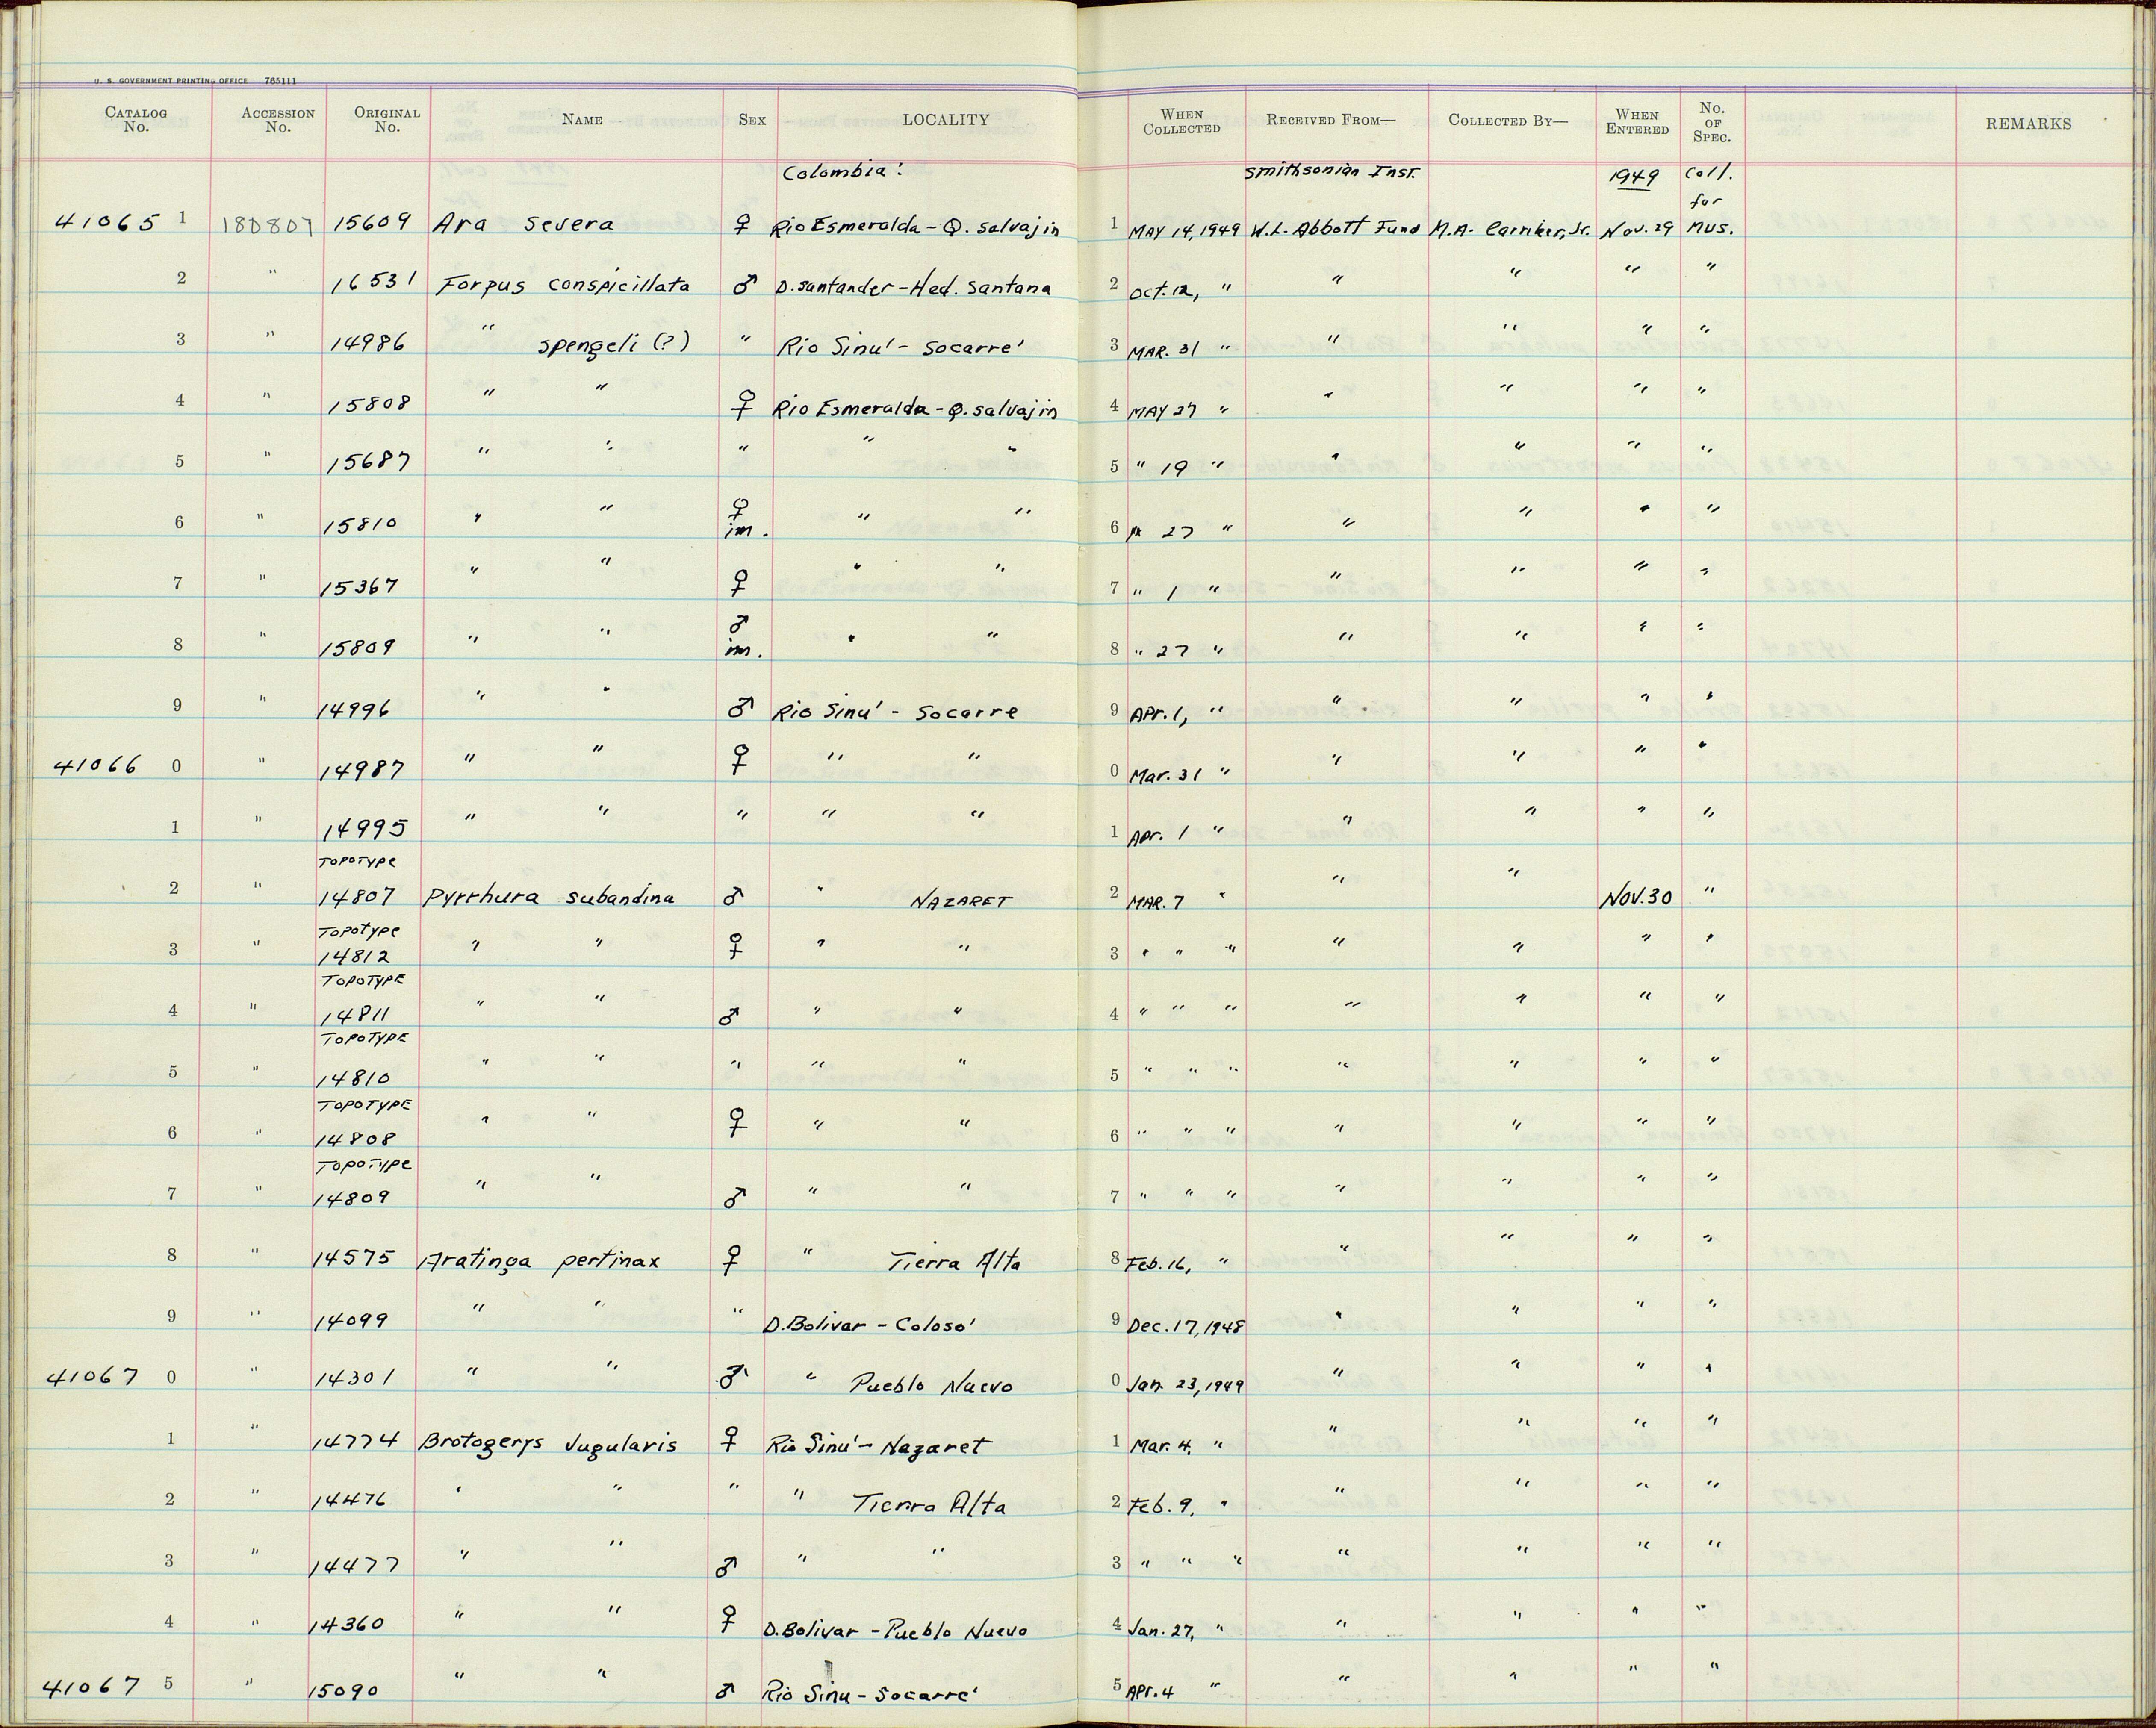 U. S. GOVERNMENT PRINTING OFFICE 765111
CATALOG No. ACCESSION No. ORIGINAL No. NAME SEX LOCALITY WHEN COLLECTED RECEIVED FROM— COLLECTED BY— WHEN ENTERED No. OF SPEC. REMARKS
Colombia: Smithsonian Inst. 1949 Coll. for
41065 1 180807 15609 Ara severa ♀ Rio Esmeralda - Q. Salvajin 1 MAY 14, 1949 W.L. Abbott Fund M.A. Carriker, Jr. Nov. 29 Mus.
2 " 16531 Forpus conspicillata ♂ D. Santander - Hed. Santana 2 Oct. 12, " " " " "
3 " 14986 " spengeli (?) " Rio Sinu' - Socarre' 3 MAR. 31 " " " " "
4 " 15808 " " ♀ Rio Esmeralda - Q. Salvajin 4 MAY 27 " " " " "
5 " 15687 " " " " " 5 " 19 " " " " "
6 " 15810 " " ♀ im. " " 6 " 27 " " " " "
7 " 15367 " " ♀ " " 7 " 1 " " " " "
8 " 15809 " " ♂ im. " " 8 " 27 " " " " "
9 " 14996 " " ♂ Rio Sinu' - Socarre 9 Apr. 1, " " " " "
41066 0 " 14987 " " ♀ " " 0 Mar. 31 " " " " "
1 " 14995 " " " " " 1 Apr. 1 " " " " "
2 " Topotype 14807 Pyrrhura subandina ♂ " NAZARET 2 MAR. 7 " " " Nov. 30 "
3 " Topotype 14812 " " ♀ " " 3 " " " " " " "
4 " Topotype 14811 " " ♂ " " 4 " " " " " " "
5 " Topotype 14810 " " " " " 5 " " " " " " "
6 " Topotype 14808 " " ♀ " " 6 " " " " " " "
7 " Topotype 14809 " " ♂ " " 7 " " " " " " "
8 " 14575 Aratinga pertinax ♀ " Tierra Alta 8 Feb. 16, " " " " "
9 " 14099 " " " D. Bolivar - Coloso' 9 Dec. 17, 1948 " " " "
41067 0 " 14301 " " ♂ " Pueblo Nuevo 0 Jan 23, 1949 " " " "
1 " 14774 Brotogerys Jugularis ♀ Rio Sinu' - Nazaret 1 Mar. 4, " " " " "
2 " 14476 " " " " Tierra Alta 2 Feb. 9, " " " " "
3 " 14477 " " ♂ " " 3 " " " " " " "
4 " 14360 " " ♀ D. Bolivar - Pueblo Nuevo 4 Jan. 27, " " " " "
41067 5 " 15090 " " ♂ Rio Sinu - Socarre' 5 Apr. 4 " " " " "